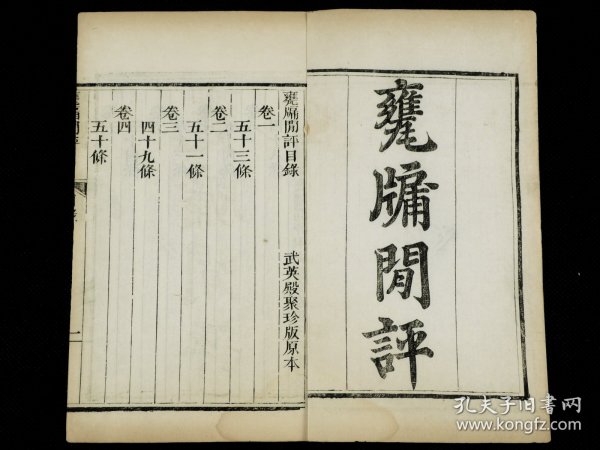 甕牖閒評
甕牖閒評目錄 武英殿聚珍版原本
卷一
五十三條
卷二
五十一條
卷三
四十九條
卷四
五十條
一
孔夫子旧书网
www.kongfz.com